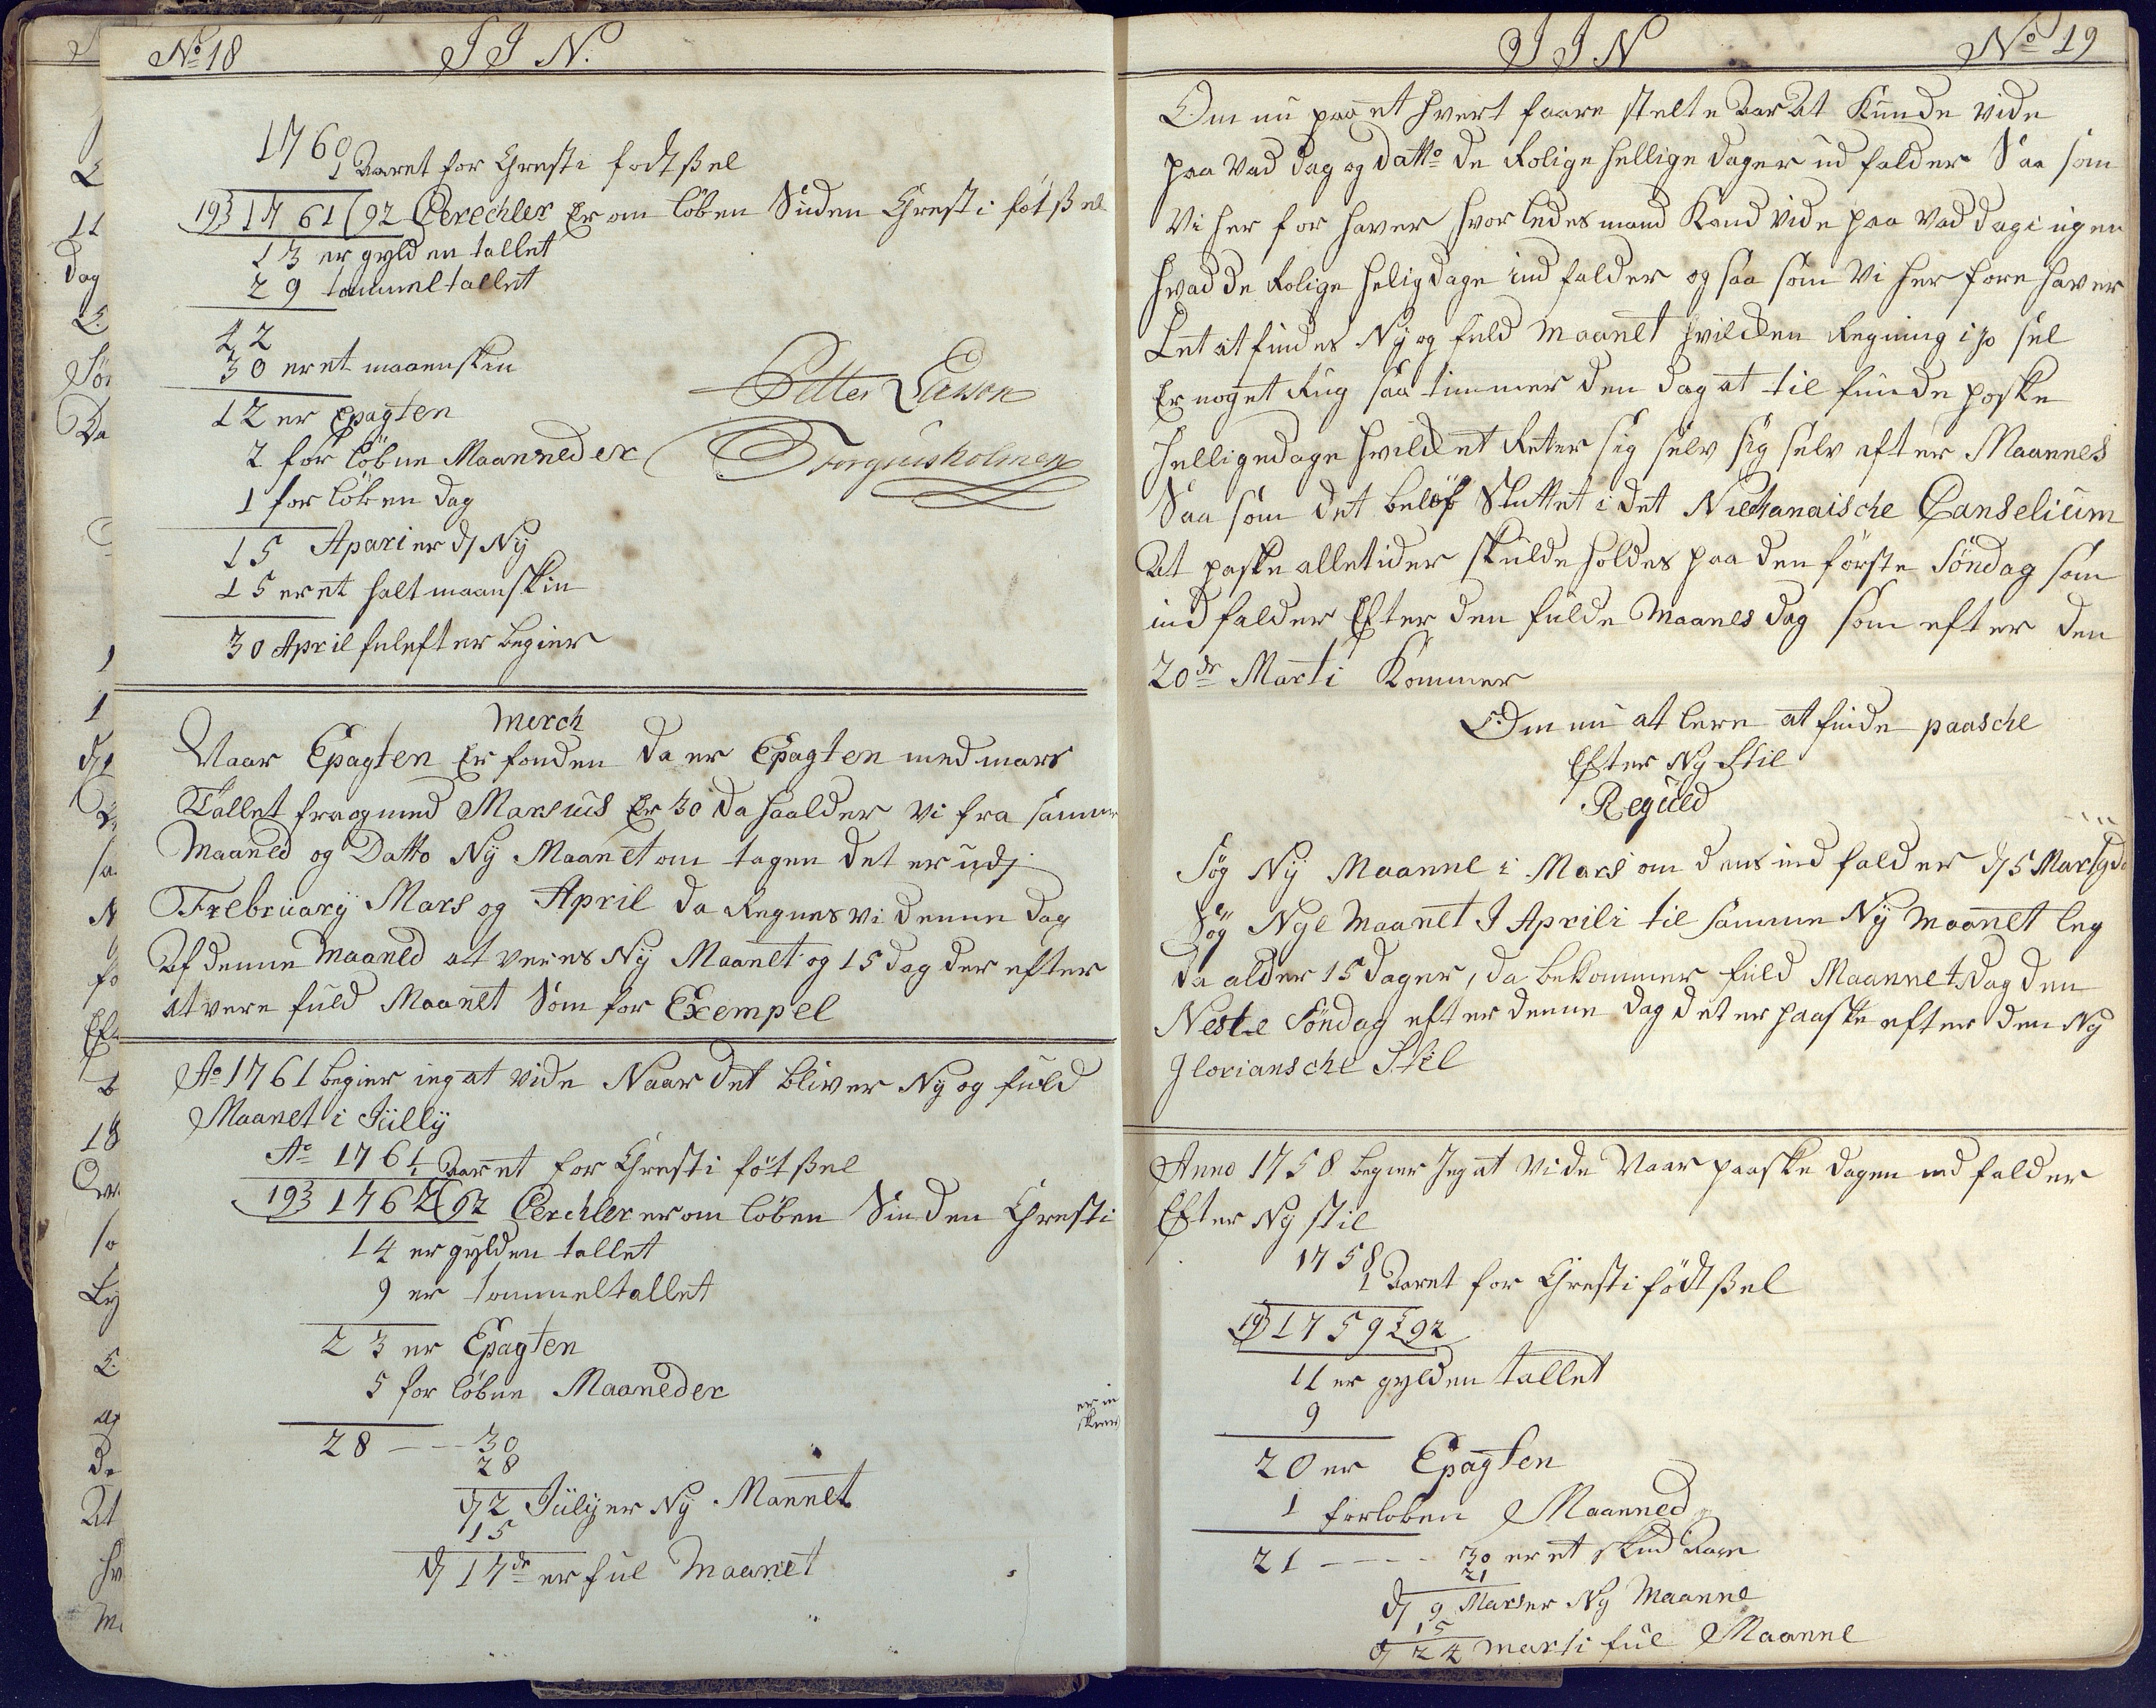 No 18 I I N.
1760
1 Aaret for Christi fodtsel
193 17 61 (92 Cerechler Er om löben Siden Christi föt ßel
13 er gylden tallet
29 tommeltallet
42
30 er et maanskin
12 er Epagten
2 for löbne Maanneder
1 for löben dag
15 Apari er d Ny
15 er et halt maanskin
30 April fulefter begier
Petter Larson
Torgiusholmen
Merch
Naar Epagten Er fonden da er Epagten med mars
Tallet fra og med Marsius Er 30 da haalder vi fra samme
Maaned og Datto Ny Maanet om tagen det er udj
Frebruary Mars og April da Regnes vi denne dag
Af denne Maaned at veres Ny Maanet og 15 dag der efter
at vere fuld Maanet Som for Exempel
Ao 1761 begier ieg at vide Naar det bliver Ny og fuld
Maanet i Jülly
Ao 1761
1 Aaret for Christi föt ßel
193 1762 (92 Cerchler er om löben Sinden Christi
14 er gylden tallet
9 er tommeltallet
23 er Epagten
5 for löbne Maaneder
28 - - - 30
28
d 2 Jülÿ er Ny Mannet
15
d 17de er ful Maanet
I I N No 19
Om nu paa et hvert faare stelte Aar At Kunde vide
paa vad dag og datto de Rolige hellige dager ind falder Saa som
Vi her for haver hvorledes mand Kand vide paa vad dag i ugen
hvad de Rolige helig dage ind falder og saa som Vi her fore haver
Let at findes Ny og fuld Maanet hvilcken Regning
Er noget saa timmer den dag at til finde poske
helligedage hvilcket Retter sig selv sig selv efter Maannes
Saa som det beløf Sluttet i det Niechanaische Canselium
At paske alletider skulde holdes paa den förste Söndag som
ind falder Efter den fulde Maanes dag som efter den
20de Marti Kommer
Om nu at lere at finde paasche
Efter Ny Stil
Reguld
Søg Ny Maanne i Mars om dens ind falder d 5 Mars
Søg Nye Maanet I Aprili til samme Ny Maanet leg
da alder 15 dager, da bekommer fuld Maannet dag den
Neste Söndag efter denne dag det er paaske efter den Ny
Gloriansche Stil
Anno 1758 begier Jeg at vide Naar paaske dagen ind falder
Efter Ny stil
1758
1 Aaret for Christi födtßel
19) 1759 (92
11 er gylden tallet
9
20 er Epagten
1 forloben Maanned
21 - - - - 30 er et skud Aar
21
d 9 Mars er Ny Maanne
15
d 24 Marti ful Maanne